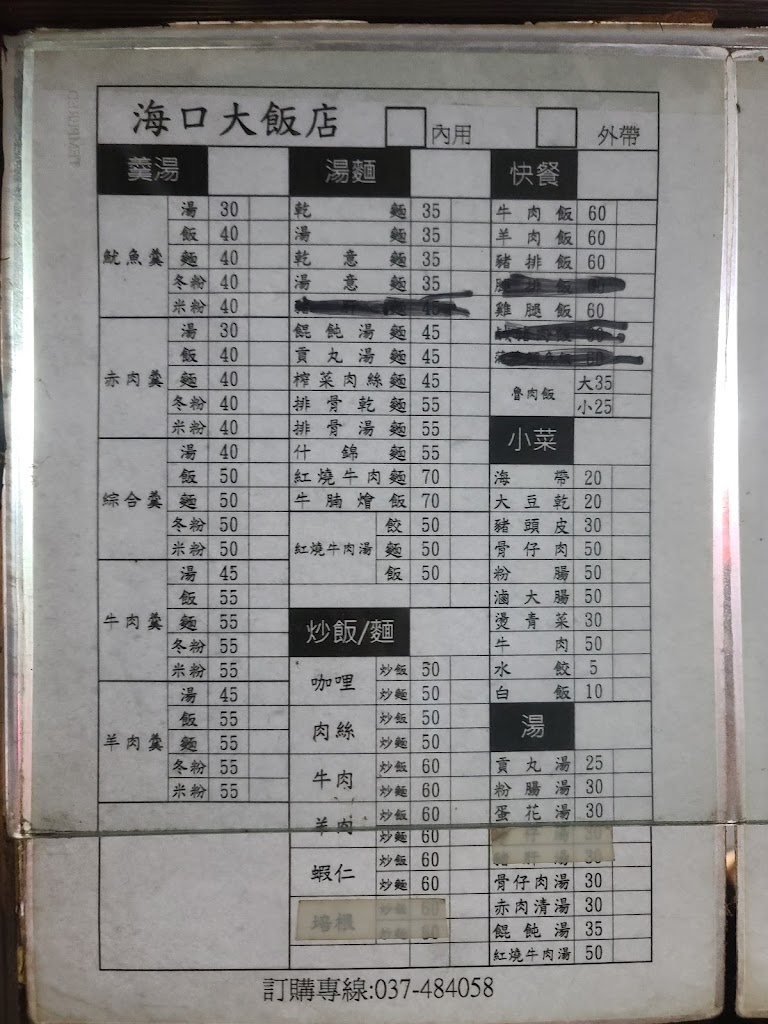 海口大飯店 內用 外帶
羹湯
魷魚羹
湯 30
飯 40
麵 40
冬粉 40
米粉 40
赤肉羹
湯 30
飯 40
麵 40
冬粉 40
米粉 40
綜合羹
湯 40
飯 50
麵 50
冬粉 50
米粉 50
牛肉羹
湯 45
飯 55
麵 55
冬粉 55
米粉 55
羊肉羹
湯 45
飯 55
麵 55
冬粉 55
米粉 55
湯麵
乾麵 35
湯麵 35
乾意麵 35
湯意麵 35
餛飩湯麵 45
貢丸湯麵 45
榨菜肉絲麵 45
排骨乾麵 55
排骨湯麵 55
什錦麵 55
紅燒牛肉麵 70
牛腩燴飯 70
紅燒牛肉湯
餃 50
麵 50
飯 50
炒飯/麵
咖哩
炒飯 50
炒麵 50
肉絲
炒飯 50
炒麵 50
牛肉
炒飯 60
炒麵 60
羊肉
炒飯 60
炒麵 60
蝦仁
炒飯 60
炒麵 60
培根
炒飯 60
炒麵 60
快餐
牛肉飯 60
羊肉飯 60
豬排飯 60
雞腿飯 60
魯肉飯
大35
小25
小菜
海帶 20
大豆乾 20
豬頭皮 30
骨仔肉 50
粉腸 50
滷大腸 50
燙青菜 30
牛肉 50
水餃 5
白飯 10
湯
貢丸湯 25
粉腸湯 30
蛋花湯 30
豬肝湯 30
骨仔肉湯 30
赤肉清湯 30
餛飩湯 35
紅燒牛肉湯 50
訂購專線:037-484058
TEMPERED